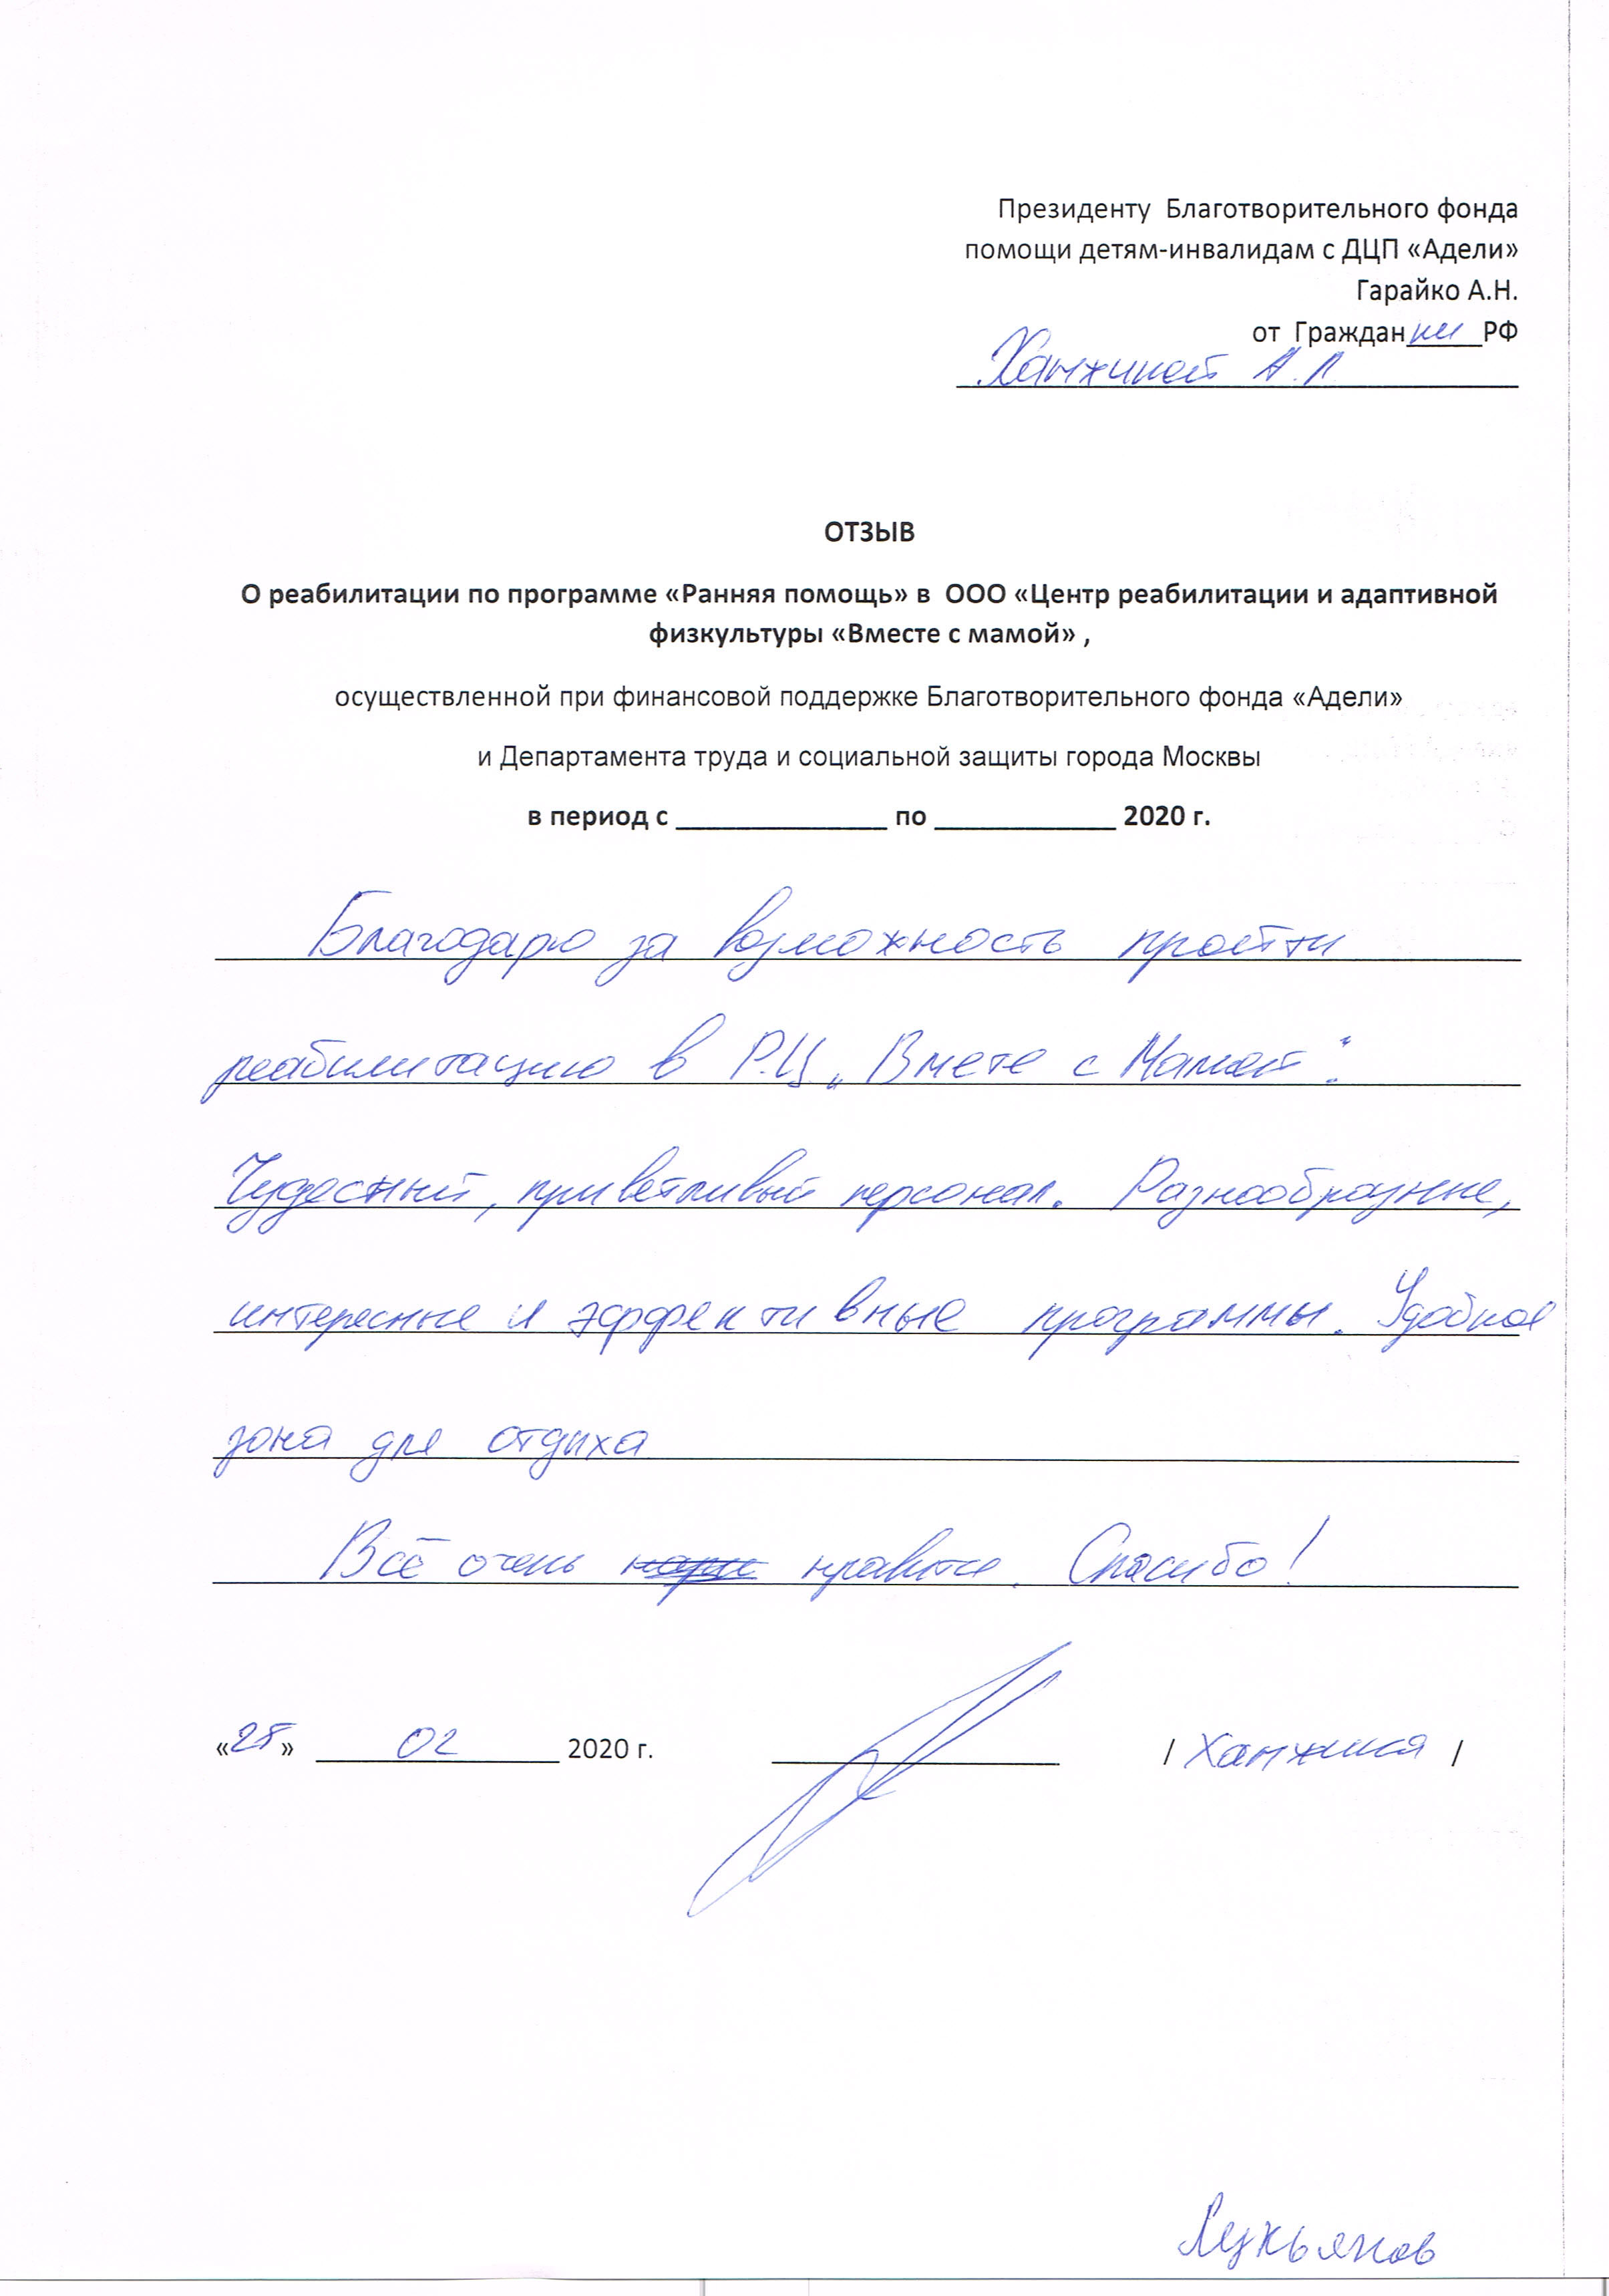 Президенту Благотворительного фонда
помощи детям-инвалидам с ДЦП «Адели»
Гарайко А.Н.
от Гражданки РФ
Ханжиной А.Л.
ОТЗЫВ
О реабилитации по программе «Ранняя помощь» в ООО «Центр реабилитации и адаптивной
физкультуры «Вместе с мамой» ,
осуществленной при финансовой поддержке Благотворительного фонда «Адели»
и Департамента труда и социальной защиты города Москвы
в период с ______________ по ____________ 2020 г.
Благодарю за возможность пройти
реабилитацию в Р.Ц. „Вмете с Мамой".
Чудесный, приветливый персонал. Разнообразные,
интересные и эффективные программы. Удобная
зона для отдыха
Всё очень нравится. Спасибо!
«28» 02 2020 г. / Ханжина /
Лукьянов